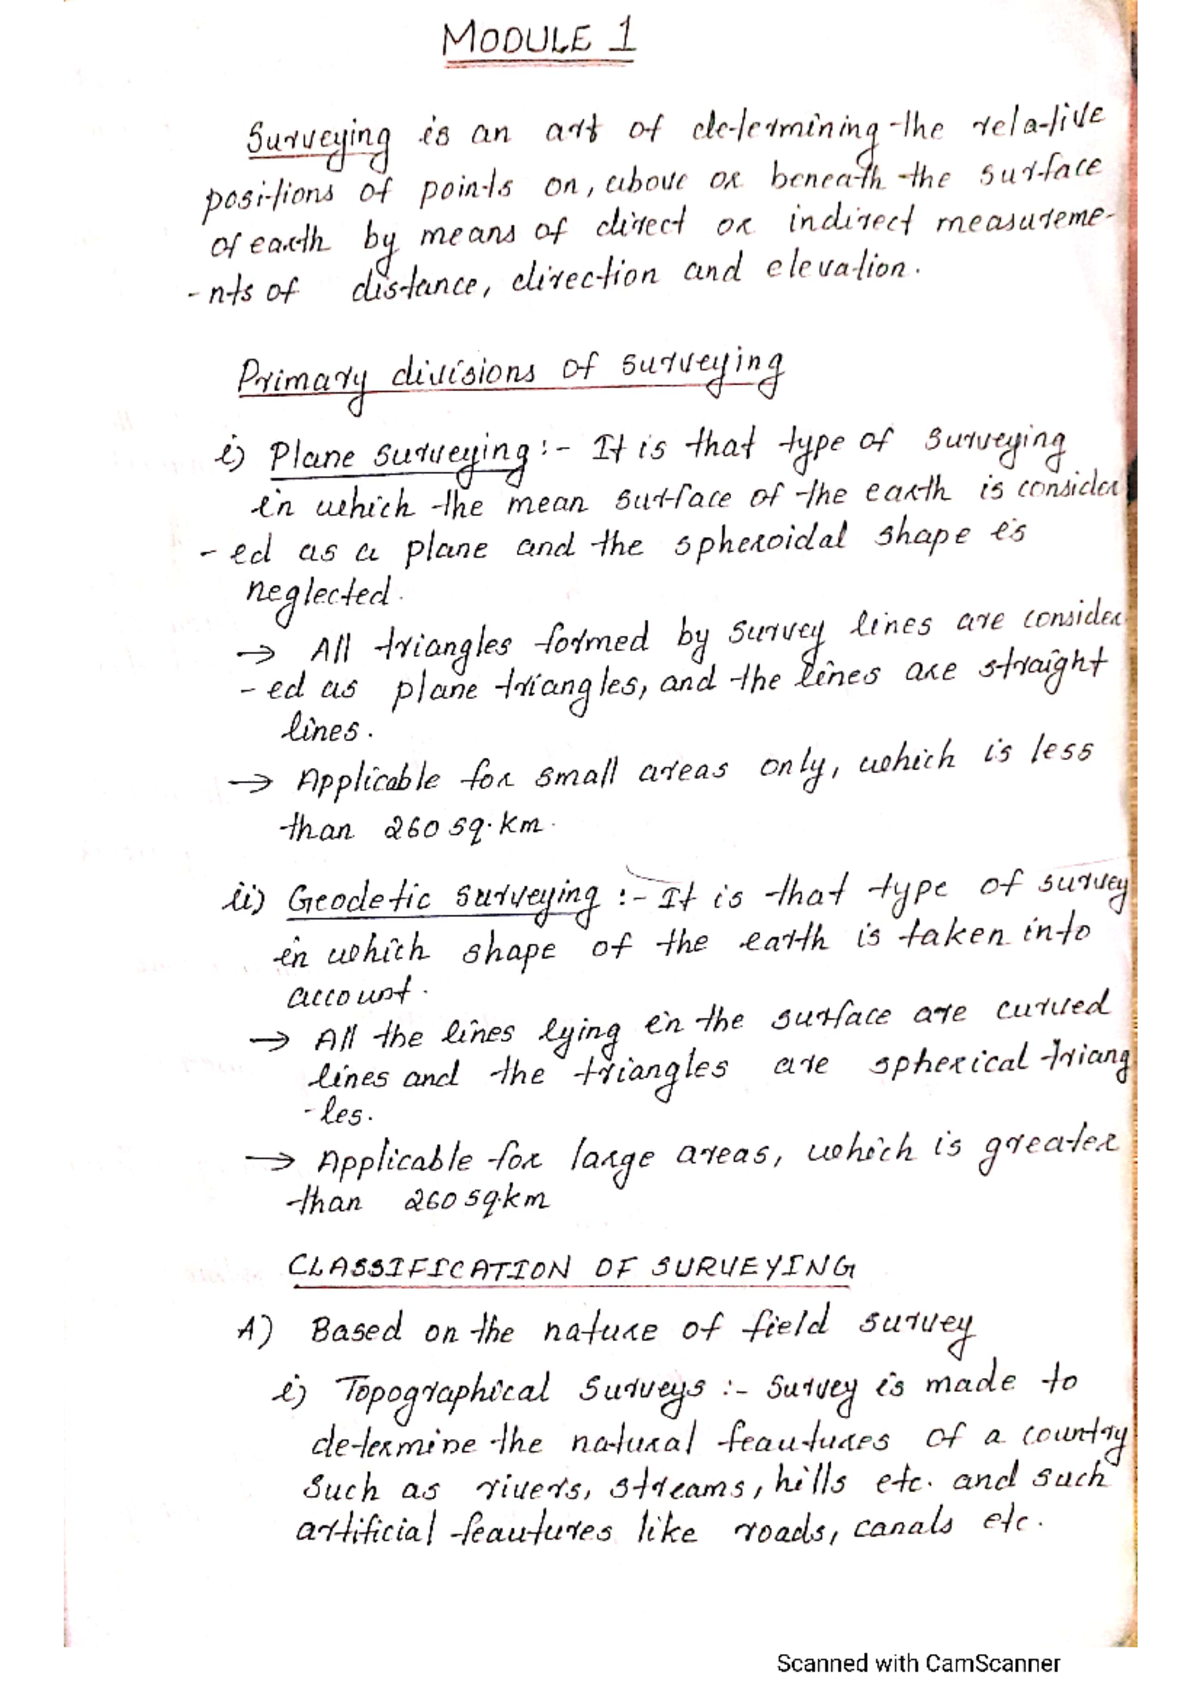 MODULE 1
Surveying is an art of determining the relative
positions of points on, above or beneath the surface
of earth by means of direct or indirect measureme-
- nts of distance, direction and elevation.
Primary divisions of surveying
i) Plane surveying :- It is that type of surveying
in which the mean surface of the earth is consider
- ed as a plane and the spheroidal shape is
neglected.
→ All triangles formed by survey lines are consider
- ed as plane triangles, and the lines are straight
lines.
→ Applicable for small areas only, which is less
than 260 sq.km.
ii) Geodetic surveying :- It is that type of survey
in which shape of the earth is taken into
account.
→ All the lines lying in the surface are curved
lines and the triangles are spherical triang
- les.
→ Applicable for large areas, which is greater
than 260 sq.km
CLASSIFICATION OF SURVEYING
A) Based on the nature of field survey
i) Topographical Surveys :- Survey is made to
determine the natural feautures of a country
such as rivers, streams, hills etc. and such
artificial feautures like roads, canals etc.
Scanned with CamScanner